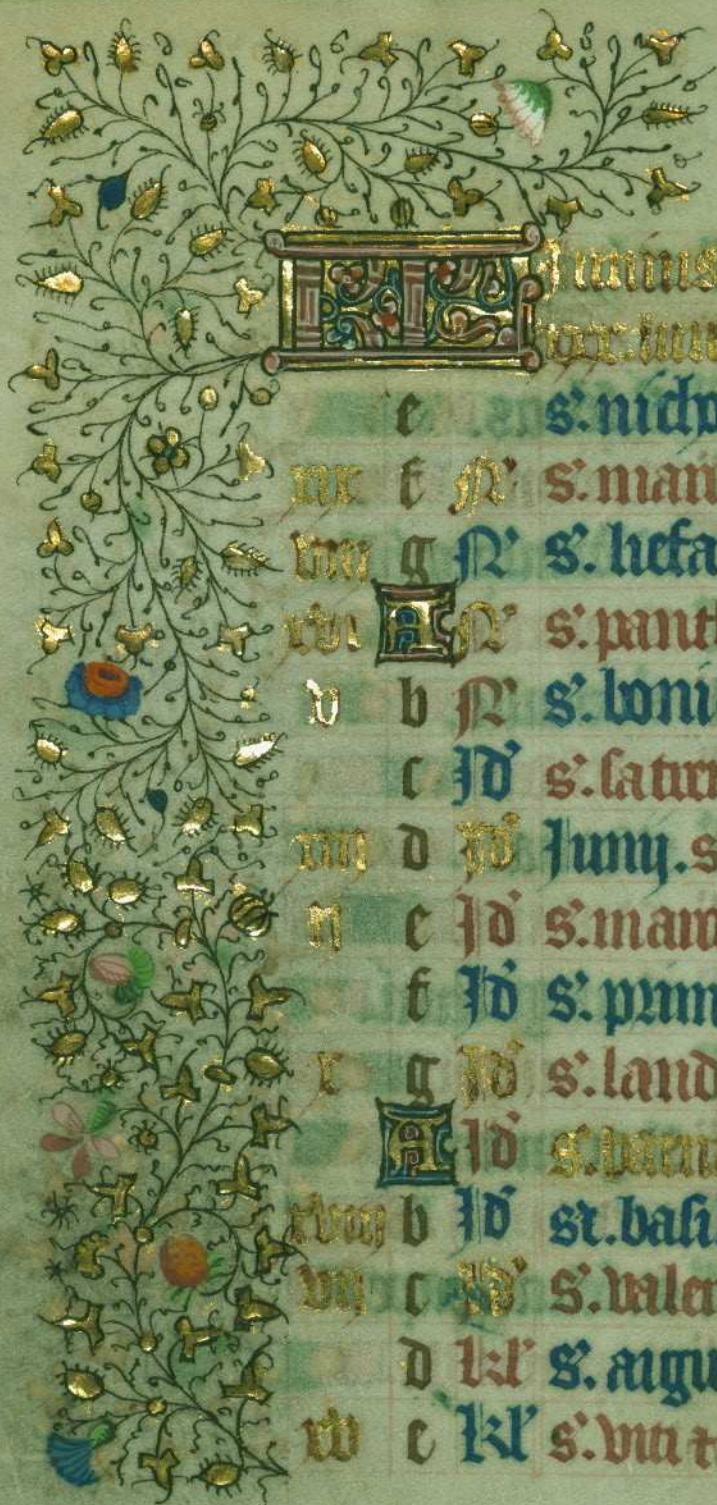 KL Junius
xxx. lun
e s. nicho
xix f N s. mar
viii g N s. hera
xvi A N s. pant
v b N s. boni
c Id s. satur
xiii d Id Junii. s
ii e Id s. mar
f Id s. prim
x g Id s. laud
A Id s. barn
xviii b Id st. basi
vii c Id s. vale
d kl s. augu
xv e kl s. viti +